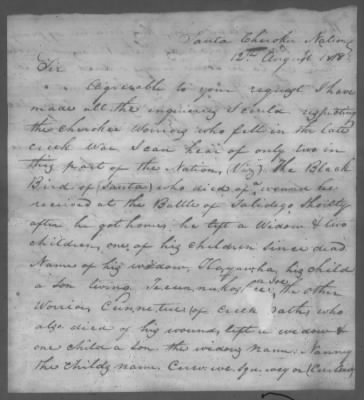 Santa Cherokee Nation
12th August 1818
Sir
Agreeable to your request I have
made all the enquiries I could respecting
the Cherokee Warriors who fell in the late
creek War I can hear of only two in
this part of the Nation, (Viz) The Black
Bird of (Santa) who died of a wound he
received at the Battle of Talidego, Shortly
after he got home, he left a Widow & two
children, one of his children Since dead
Name of his widow, his child
a Son living the other
Warrior, of creek path, who
also died of his wound, left a widow &
one child a Son the widows name, Nanny
the childs name,